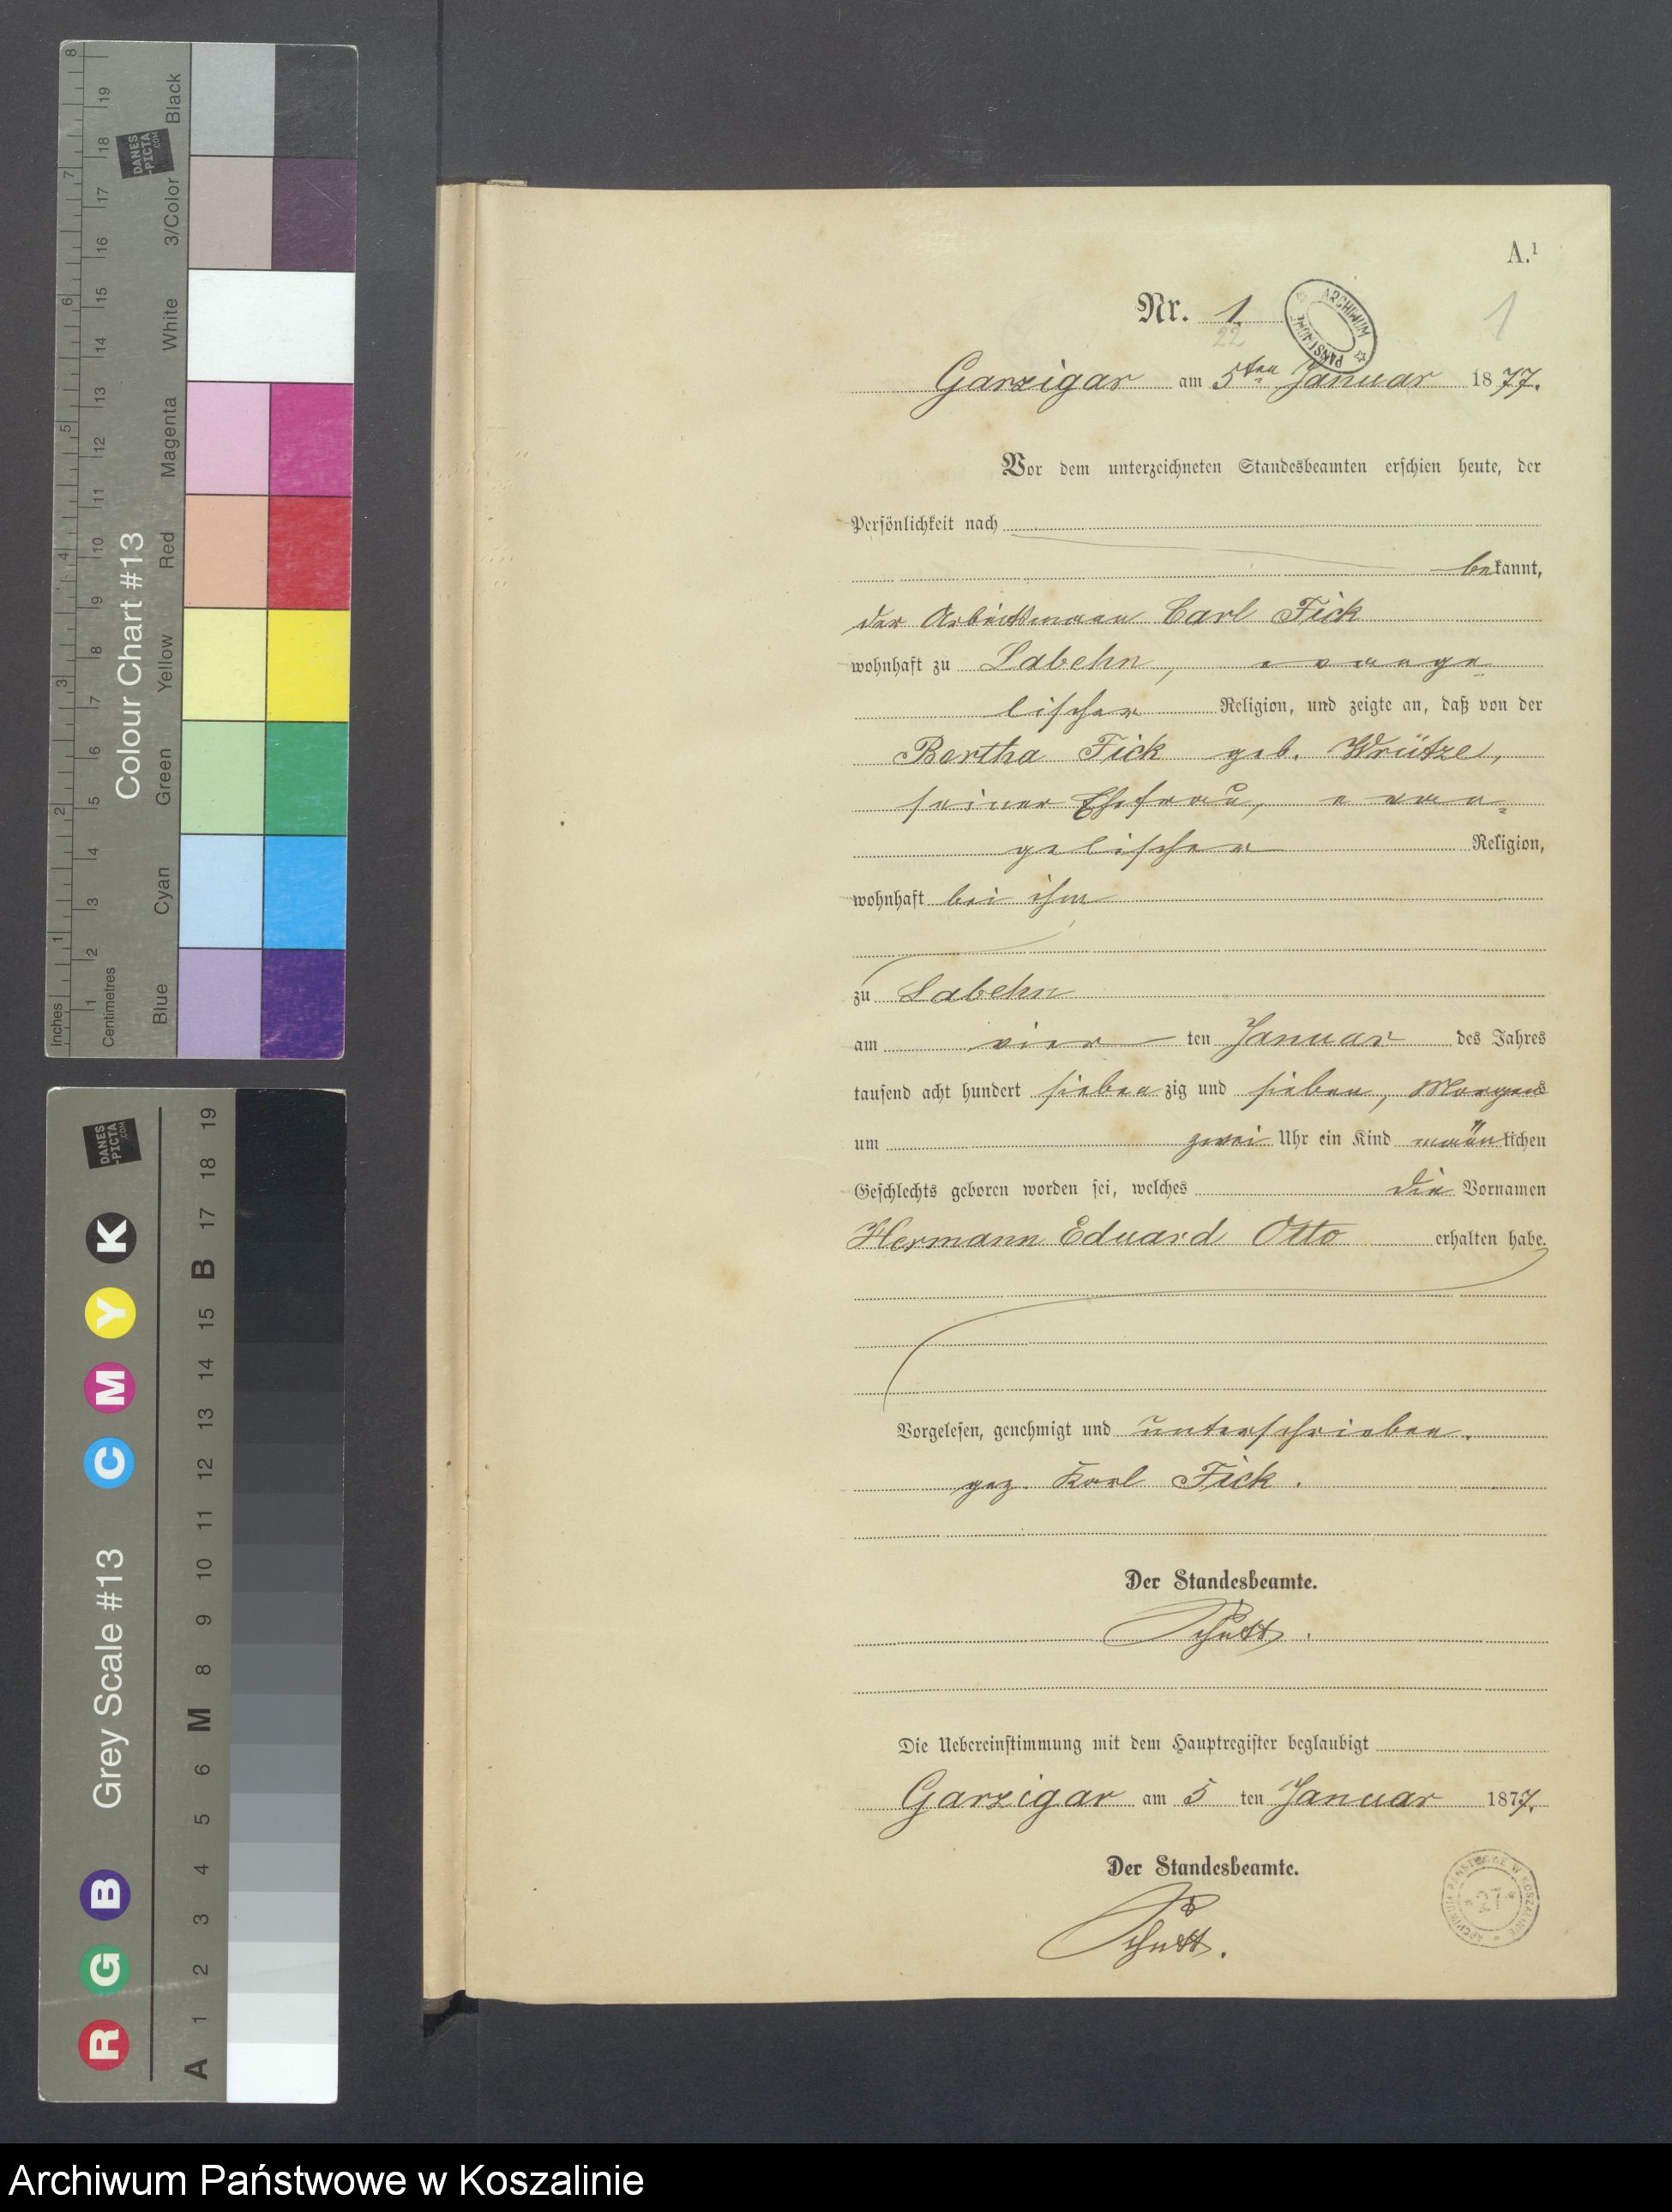 A.¹
Nr. 1.
22
1
ARCHIWUM PAŃSTWOWE
Garzigar am 5ten Januar 1877.
Vor dem unterzeichneten Standesbeamten erschien heute, der
Persönlichkeit nach
bekannt,
der Arbeitsmann Carl Fick
wohnhaft zu Labehn, evange
lischer Religion, und zeigte an, daß von der
Bertha Fick geb. Wrütze,
seiner Ehefrau, evan=
gelischer Religion,
wohnhaft bei ihm
zu Labehn
am vier ten Januar des Jahres
tausend acht hundert sieben zig und sieben, Morgens
um zwei Uhr ein Kind männlichen
Geschlechts geboren worden sei, welches die Vornamen
Hermann Eduard Otto erhalten habe.
Vorgelesen, genehmigt und unterschrieben.
gez. Karl Fick.
Der Standesbeamte.
Die Uebereinstimmung mit dem Hauptregister beglaubigt
Garzigar am 5 ten Januar 1877.
Der Standesbeamte.
ARCHIWUM PAŃSTWOWE W KOSZALINIE
* 27 *
Colour Chart #13
Blue Cyan Green Yellow Red Magenta White 3/Color Black
Inches 1 2 3 4 5 6 7 8
Centimetres 1 2 3 4 5 6 7 8 9 10 11 12 13 14 15 16 17 18 19
DANES
-PICTA
.COM
Grey Scale #13
R G B C M Y K
A 1 2 3 4 5 6 M 8 9 10 11 12 13 14 15 B 17 18 19
DANES
-PICTA
.COM
Archiwum Państwowe w Koszalinie